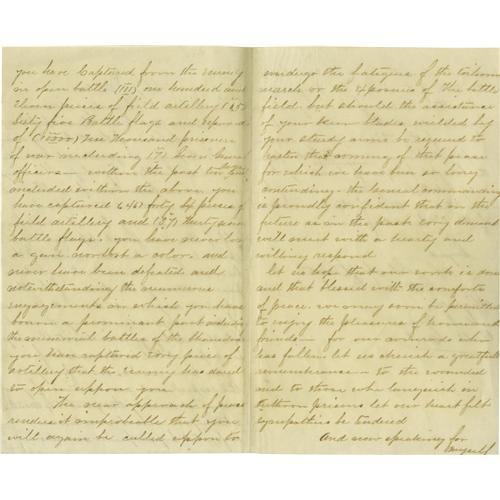 you have Captured from the enemy
in open battle (111) one hundred and
eleven pieces of field artillery (65)
Sixty five Battle flags and upwards
of (10000) Ten Thousand prisoners
of war including (7) Seven General
officers — within the past ten days
included within the above. you
have captured (46) forty six pieces of
field artillery and (37) thirty seven
battle flags. you have never lost
a gun. never lost a color. and
never have been defeated and
notwithstanding the numerous
engagements in which you have
borne a prominent part including
the memorial battles of the Shanadoe
you have captured every piece of
artillery that the enemy has dared
to open uppon you
The near approach of peace
renders it improbable that you
will again be called uppon to
undergo the fatigues of the toilsome
march or the exposure of the battle
field. but should the assistance
of your keen blades wielded by
your sturdy arms be required to
hasten the coming of that peace
for which we have been so long
contending. the General commanding
is proudly confident that in the
future as in the past every demand
will meet with a hearty and
willing respond
let us hope that our work is done
and that blessed with the comforts
of peace we may soon be permitted
to enjoy the pleasures of home and
friends — for our comrads who
has fallen let us cherish a greatful
remembrance — to the wounded
and to those who languish in
Southern prisons let our heart felt
sympathies be tendered
And now speaking for
myself